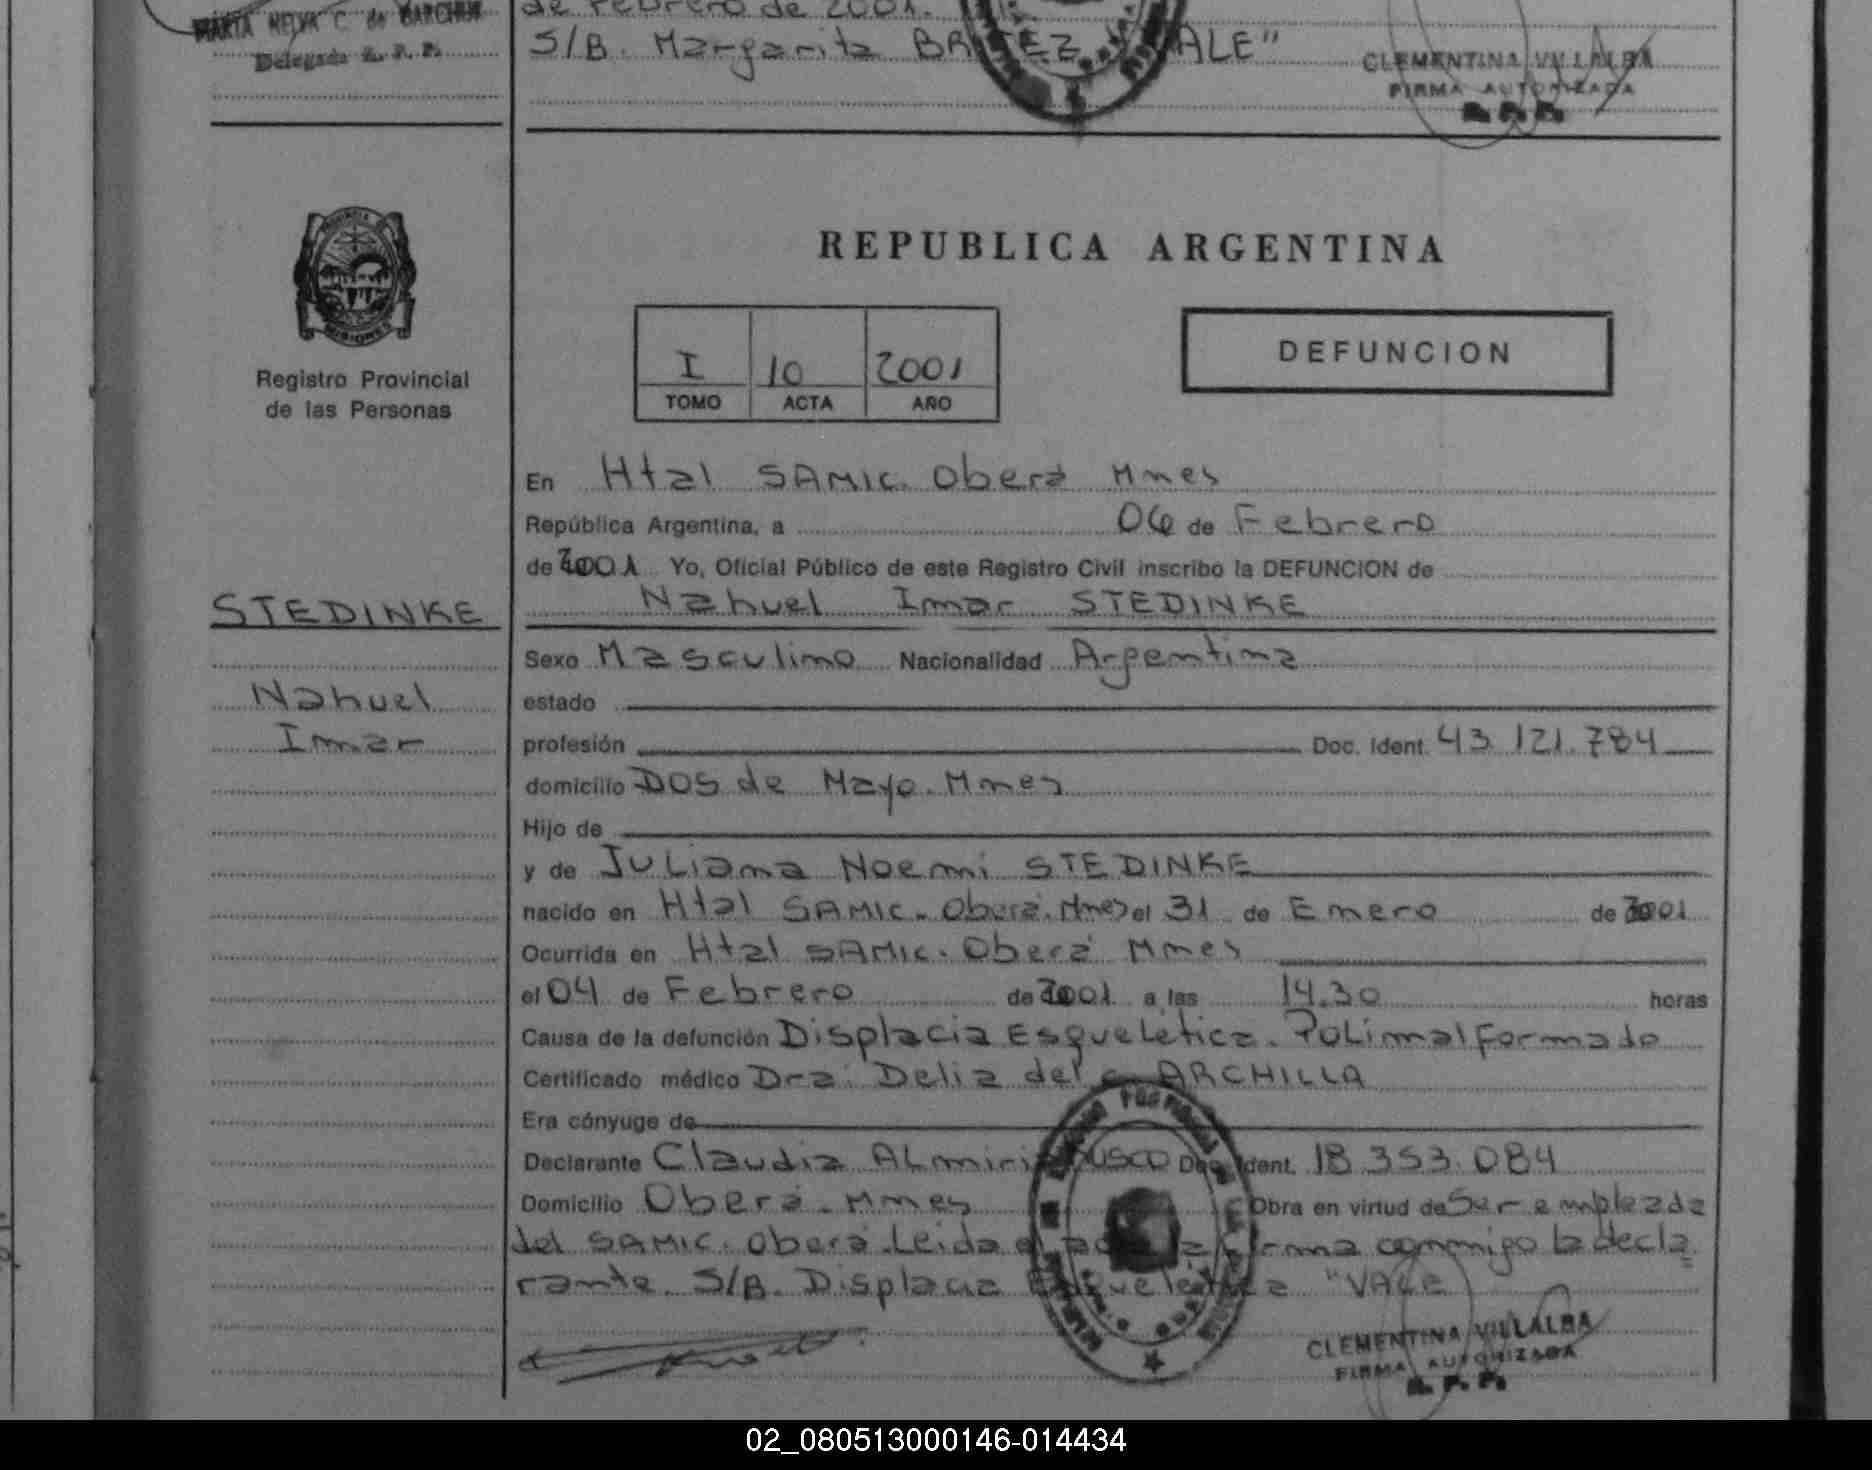 MARTA NELVA C. de BARCHUK
Delegada R. P. P.
de Febrero de 2001.
S/B. Margarita VALE"
CLEMENTINA VILLALBA
FIRMA AUTORIZADA
R. P. P.
PROVINCIA DE
MISIONES
Registro Provincial
de las Personas
REPUBLICA ARGENTINA
I 10 2001
TOMO ACTA AÑO
DEFUNCION
En Htal SAMIC. Oberá Mnes
República Argentina, a 06 de Febrero
de 2001 Yo, Oficial Público de este Registro Civil inscribo la DEFUNCION de
Nahuel Imar STEDINKE
STEDINKE
Nahuel
Imar
Sexo Masculino Nacionalidad Argentina
estado
profesión Doc. Ident. 43.121.784
domicilio DOS de Mayo. Mnes
Hijo de
y de Juliana Noemi STEDINKE
nacido en Htal SAMIC. Oberá. Mnes el 31 de Enero de 2001
Ocurrida en Htal SAMIC. Oberá Mnes
el 04 de Febrero de 2001 a las 14.30 horas
Causa de la defunción Displacia Esquelética. Polimalformado
Certificado médico Dra. Delia del C. ARCHILLA
Era cónyuge de
Declarante Claudia Almiri Doc. Ident. 18.353.084
Domicilio Oberá. Mnes Obra en virtud de Ser empleada
del SAMIC. Oberá. Leida el acta la firma conmigo la decla
rante. S/B. Displacia Esquelética "VALE
CLEMENTINA VILLALBA
FIRMA AUTORIZADA
R. P. P.
02_080513000146-014434